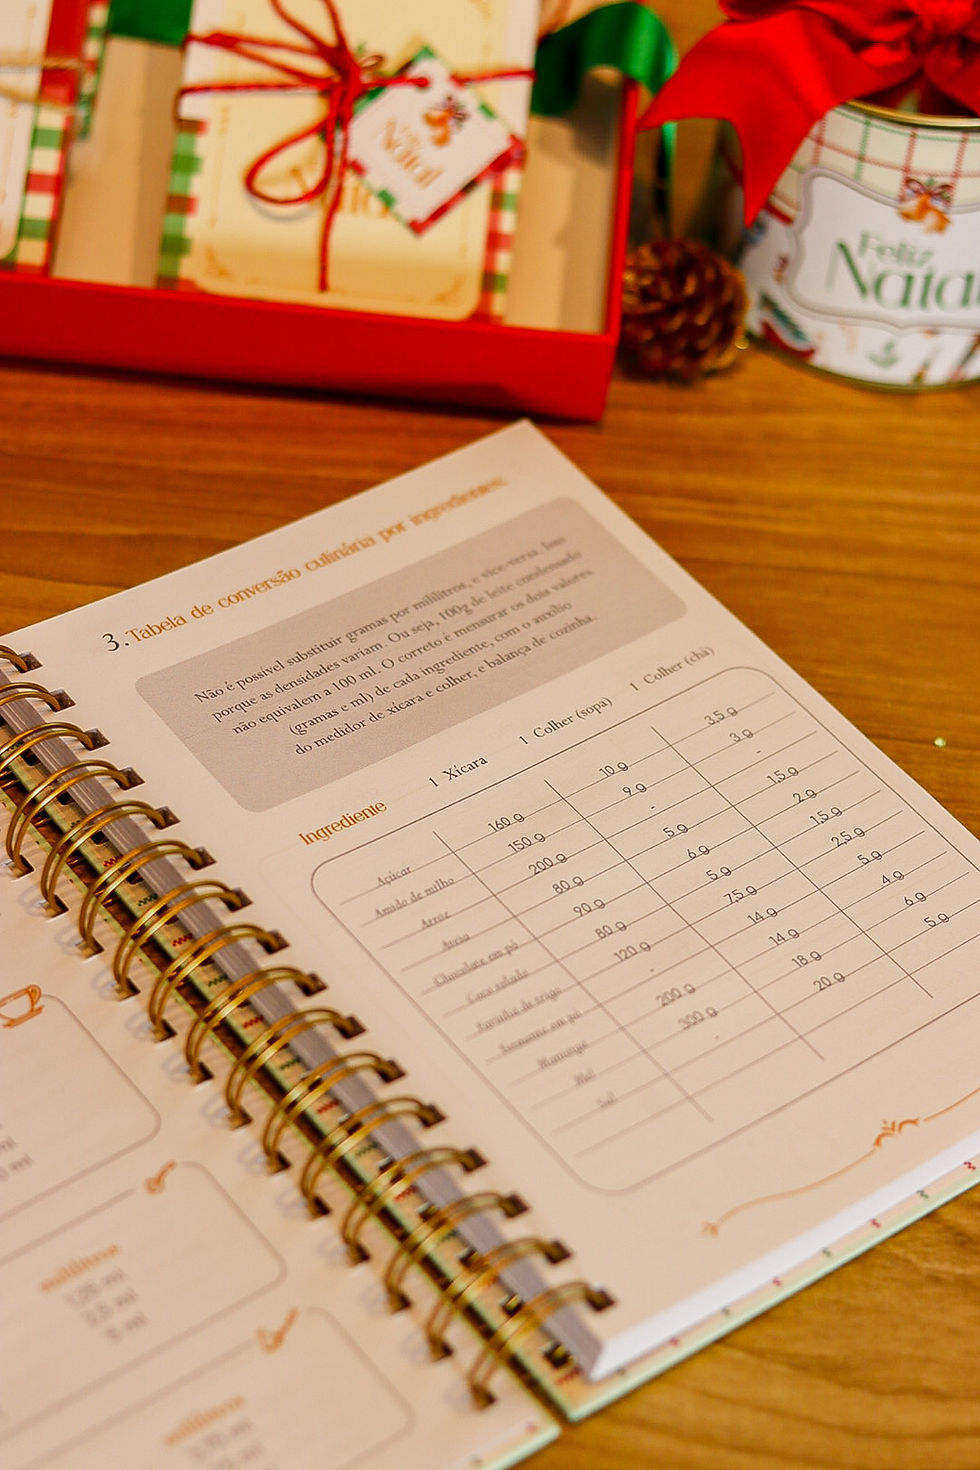 Feliz
Natal
Feliz
Natal
3. Tabela de conversão culinária por ingredientes:
Não é possível substituir gramas por mililitros, e vice-versa. Isso
porque as densidades variam. Ou seja, 100g de leite condensado
não equivalem a 100 ml. O correto é mensurar os dois valores
(gramas e ml) de cada ingrediente, com o auxílio
do medidor de xícara e colher, e balança de cozinha.
Ingrediente 1 Xícara 1 Colher (sopa) 1 Colher (chá)
Açúcar 160 g 10 g 3,5 g
Amido de milho 150 g 9 g 3 g
Arroz 200 g - -
Aveia 80 g 5 g 1,5 g
Chocolate em pó 90 g 6 g 2 g
Coco ralado 80 g 5 g 1,5 g
Farinha de trigo 120 g 7,5 g 2,5 g
Fermento em pó - 14 g 5 g
Manteiga 200 g 14 g 4 g
Mel 300 g 18 g 6 g
Sal - 20 g 5 g
mililitros
5 ml
mililitros